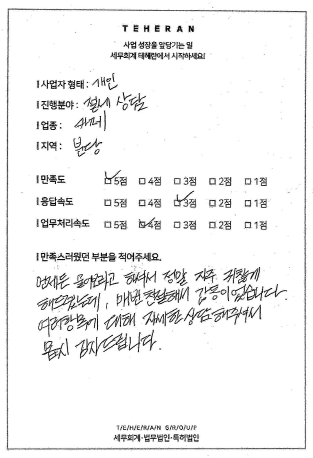 TEHERAN
사업 성장을 앞당기는 일
세무회계 테헤란에서 시작하세요!
I 사업자 형태 : 개인
I 진행분야 : 절세 상담
I 업종 : 카페
I 지역 : 분당
I 만족도 ☑ 5점 □ 4점 □ 3점 □ 2점 □ 1점
I 응답속도 □ 5점 □ 4점 ☑ 3점 □ 2점 □ 1점
I 업무처리속도 □ 5점 ☑ 4점 □ 3점 □ 2점 □ 1점
I 만족스러웠던 부분을 적어주세요.
언제든 물어보라고 하셔서 정말 자주 귀찮게
해드렸는데, 매번 친절해서 감동이었습니다.
여러항목에 대해 자세한 상담 해주셔서
몹시 감사드립니다.
TEHERAN GROUP
세무회계·법무법인·특허법인